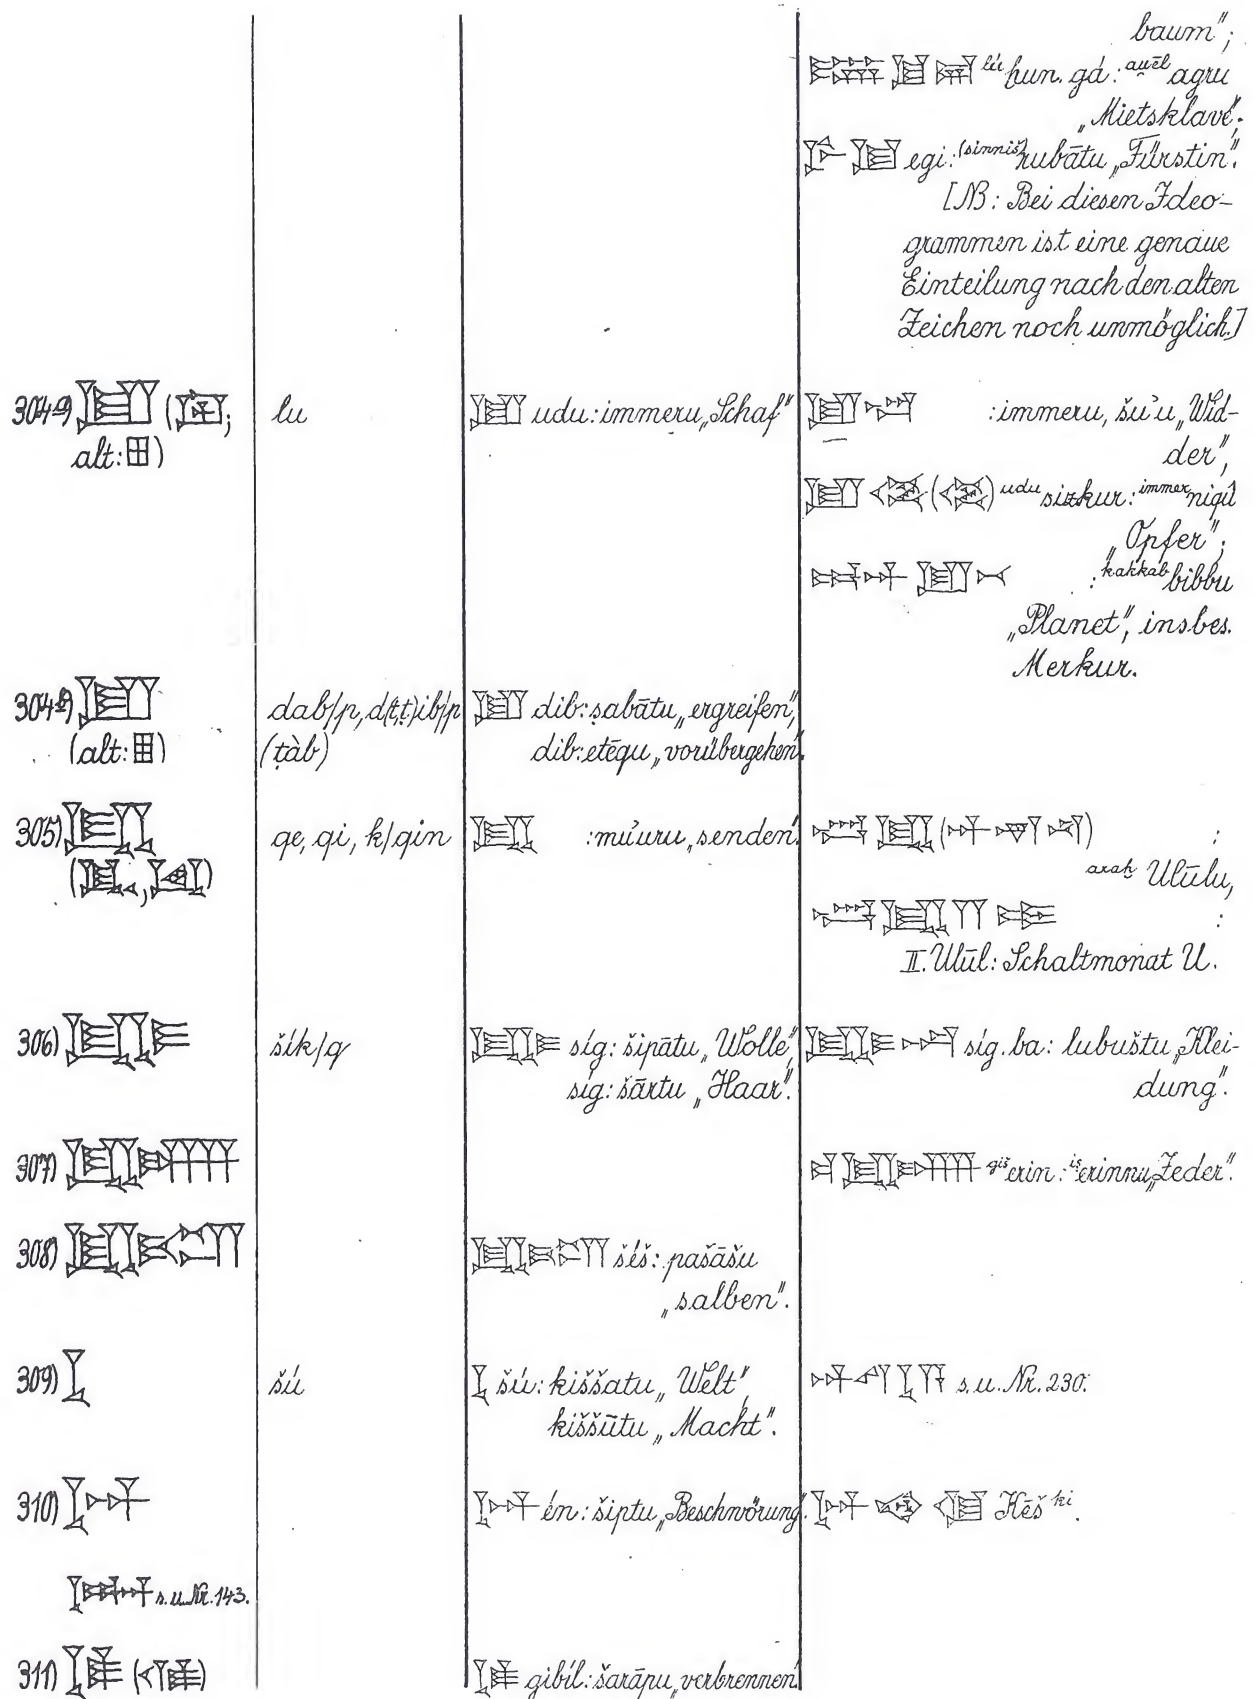 baum";
lú hun.gá: awēl agru
„Mietsklave";
egi: (sinniš) rubātu „Fürstin".
[NB: Bei diesen Ideo-
grammen ist eine genaue
Einteilung nach den alten
Zeichen noch unmöglich.]
304a) ( ; lu udu: immeru „Schaf" : immeru, šu'u „Wid-
alt: ) der",
udu sizkur: immer niqû
„Opfer";
: kakkab bibbu
„Planet", insbes.
Merkur.
304b) dab/p, d(t,ṭ)ib/p dib: ṣabātu „ergreifen",
(alt: ) (ṭàb) dib: etēqu „vorübergehen".
305) qe, qi, k/qin : mu'uru „senden". ( ) :
( , ) araḫ Ulūlu,
:
II. Ulūl: Schaltmonat U.
306) šík/q síg: šipātu „Wolle", síg.ba: lubuštu „Klei-
síg: šārtu „Haar". dung".
307) giš erin: iṣ erinnu „Zeder".
308) šéš: pašāšu
„salben".
309) šú šú: kiššatu „Welt", s.u. Nr. 230.
kiššūtu „Macht".
310) én: šiptu „Beschwörung". Kēš ki.
s.u. Nr. 143.
311) ( ) gibíl: šarāpu „verbrennen".